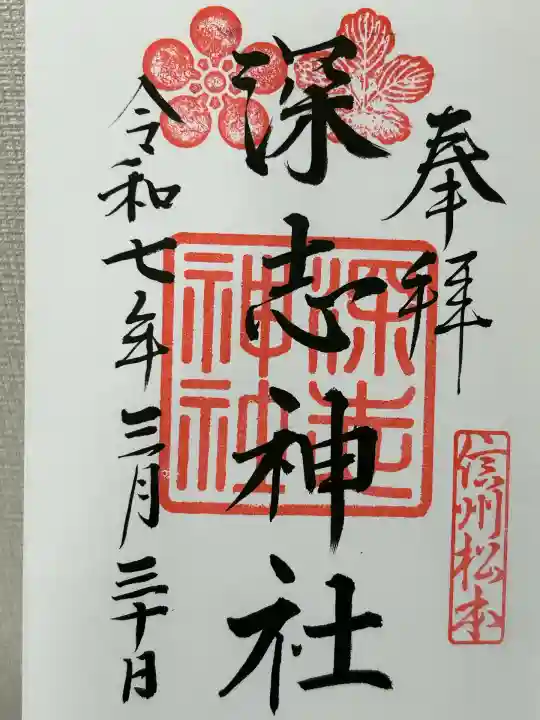 奉拝
信州松本
深志神社
深志神社
令和七年三月三十日